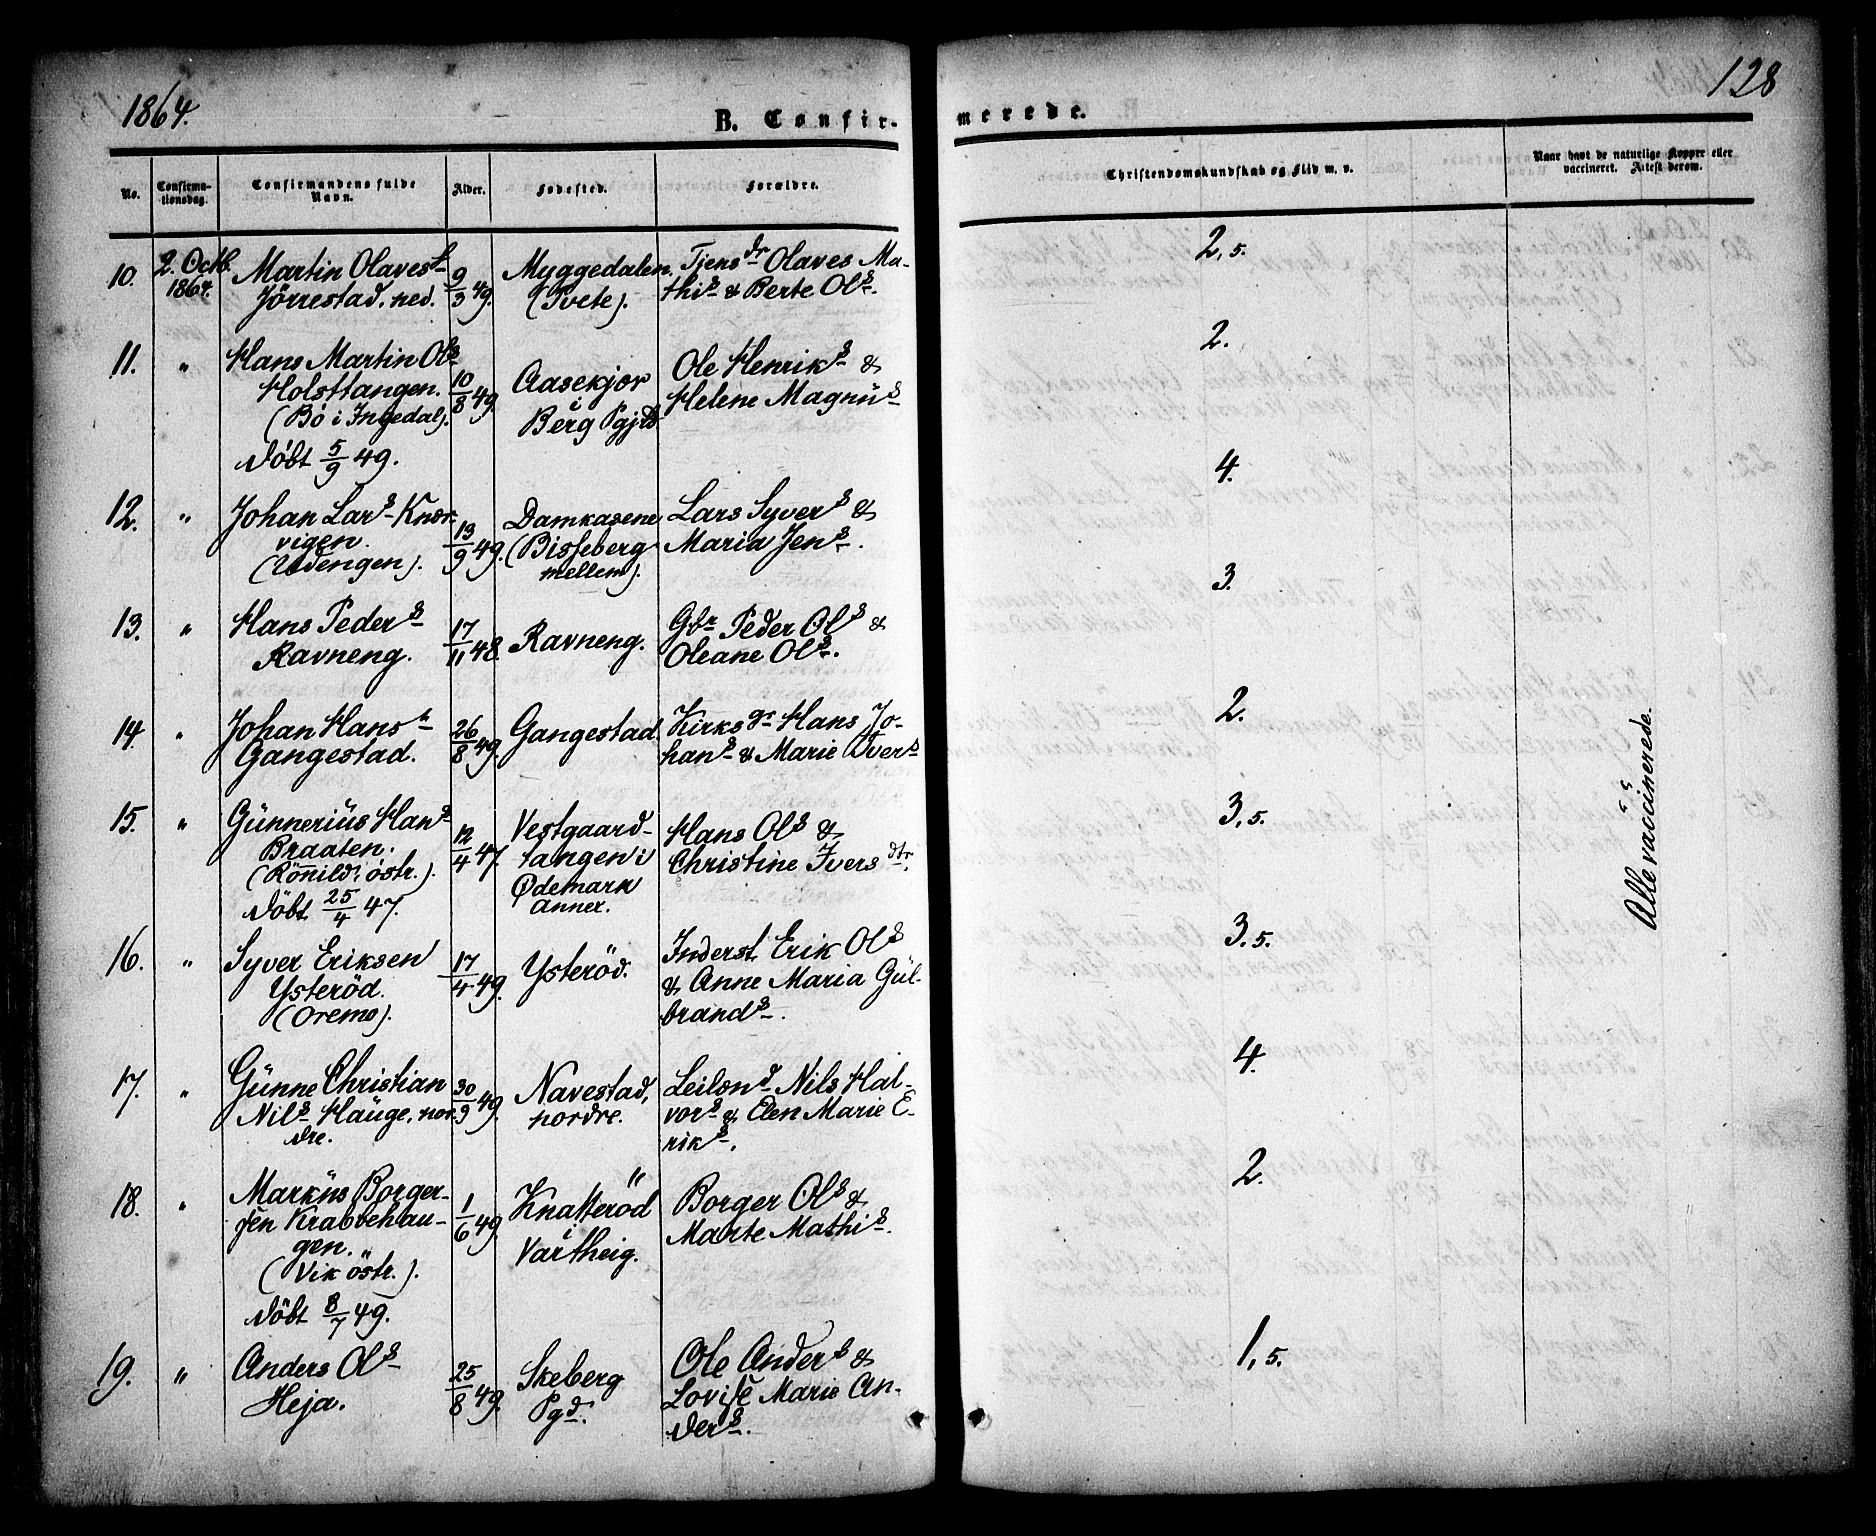 1864.
B. Confirmerede.
128
No.
Confirmationsdag.
Confirmandens fulde Navn.
Alder.
Fødested.
Forældre.
Christendomskundskab og Flid m. v.
Naar havt de naturlige Kopper eller vaccineret. Attest derom.
10.
2. Octb. 1864.
Martin Olaves
Jörrestad, ned.
9/3 49.
Myggedalen
(Tvete).
Tjens Olaves Ma-
this & Berte Ols.
2,5.
11.
"
Hans Martin Ols
Holsttangen.
(Bö i Ingedal).
Döbt 5/9 49.
10/8 49.
Aasekjær
i
Berg Pgjld
Ole Henriks &
Helene Magnüs
2.
12.
"
Johan Lars Knar-
vigen.
(Udengen).
13/9 49.
Damkasene
(Bisseberg
mellem).
Lars Syvers &
Maria Jens.
4.
13.
"
Hans Peders
Ravneng.
17/11 48.
Ravneng.
Gbr Peder Ols &
Oleane Ols.
3.
14.
"
Johan Hans
Gangestad.
26/8 49.
Gangestad
Kirks gr Hans Jo-
hans & Marie Ivers
2.
15.
"
Günnerius Hans
Braaten.
(Rönnild, östr.).
Döbt 25/4 47.
12/4 47.
Vestgaard-
tangen i
Ødemark
Annex.
Hans Ols &
Christine Ivers dtr.
3,5.
16.
"
Syver Eriksen
Ysteröd.
(Oremo).
17/4 49.
Ysteröd.
Inderst Erik Ols
& Anne Maria Gül-
brands.
3,5.
17.
"
Günne Christian
Nils Haüge, nor-
dre.
30/9 49.
Navestad,
nordre.
Leilænd Nils Hal-
vors & Elen Marie E-
riks.
4.
18.
"
Markus Borger-
sen Krabbehau-
gen.
(Vik östr.).
Döbt 8/7 49.
1/6 49.
Knatteröd
i
Vartheig.
Borger Ols &
Marte Mathis.
2.
19.
"
Anders Ols
Heja.
25/8 49.
Skeberg
Pgd.
Ole Anders &
Lovise Marie An-
ders.
1,5.
Alle vaccinerede.